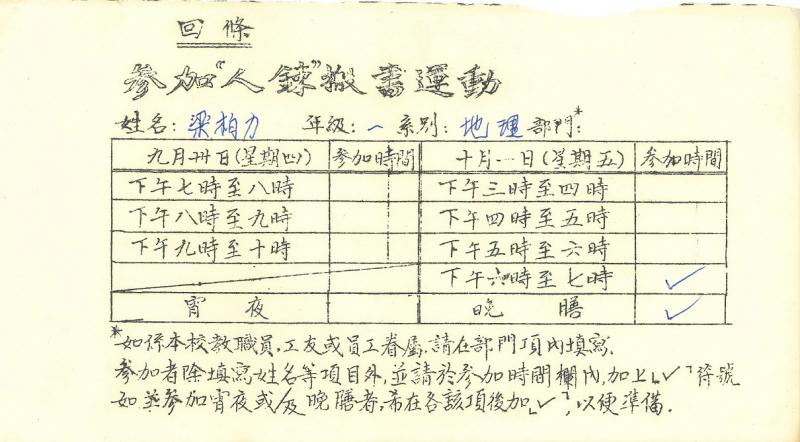 回條
參加“人鍊”搬書運動
姓名：梁柏力 年級：一 系別：地理 部門*：
九月卅日(星期四) 參加時間 十月一日(星期五) 參加時間
下午七時至八時 下午三時至四時
下午八時至九時 下午四時至五時
下午九時至十時 下午五時至六時
下午六時至七時 ✓
宵夜 晚膳 ✓
*如係本校教職員，工友或員工眷屬，請在部門項內填寫．
參加者除填寫姓名等項目外，並請於參加時間欄內，加上「✓」符號
如並參加宵夜或/及晚膳者，希在各該項後加「✓」，以便準備．